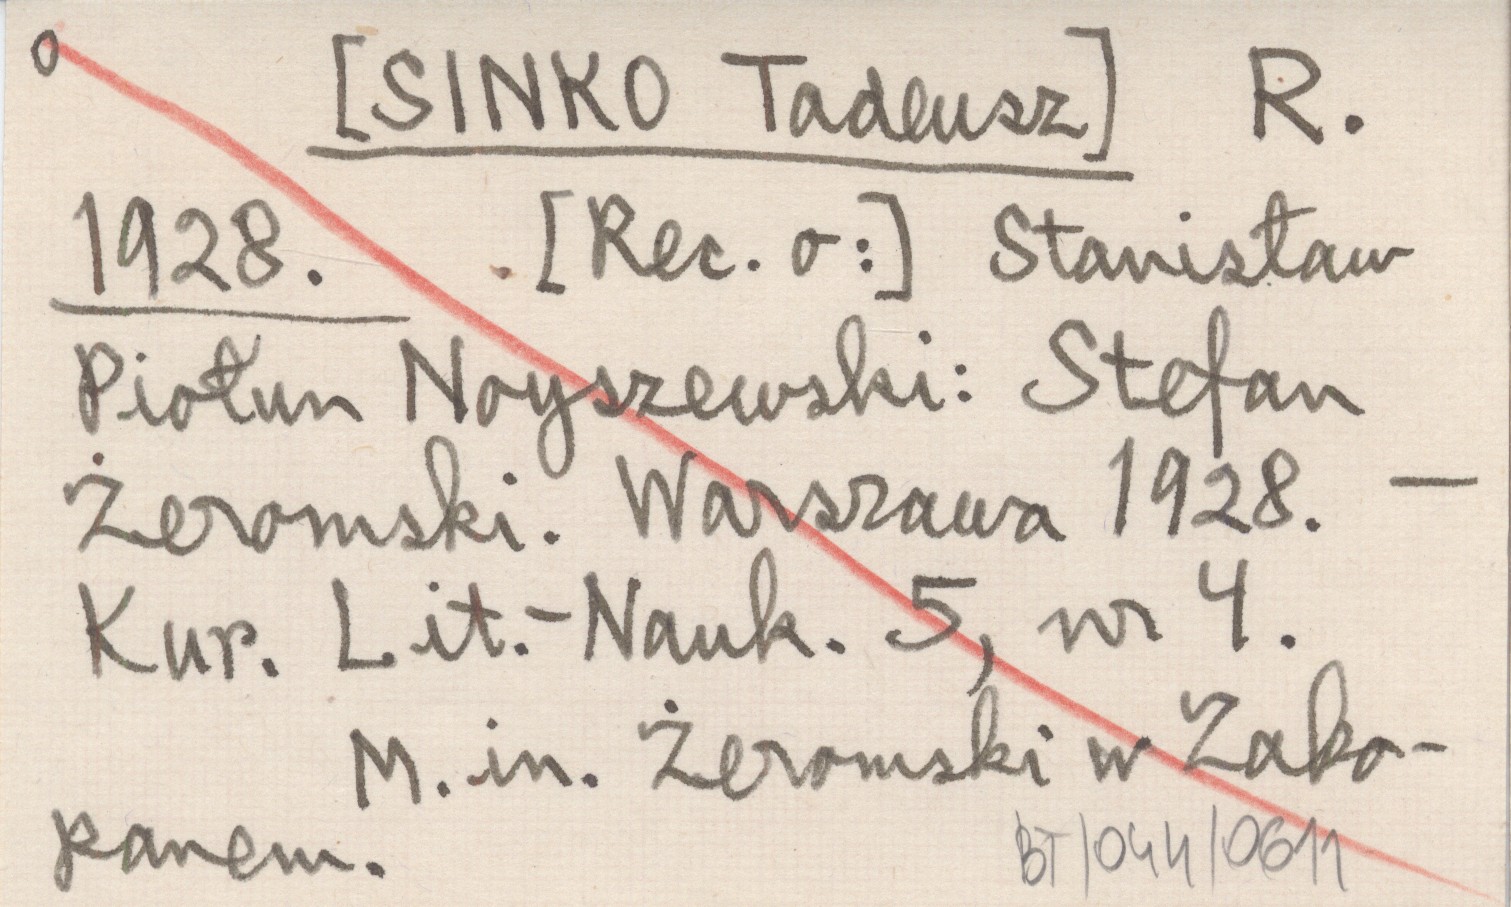 o [SINKO Tadeusz] R.
1928. [Rec. o:] Stanisław
Piołun Noyszewski: Stefan
Żeromski. Warszawa 1928. —
Kur. Lit.-Nauk. 5, nr 4.
M. in. Żeromski w Zako-
panem.
BT/044/0611